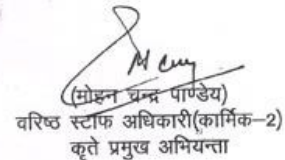 (मोहन चन्द्र पाण्डेय)
वरिष्ठ स्टॉफ अधिकारी(कार्मिक–2)
कृते प्रमुख अभियन्ता